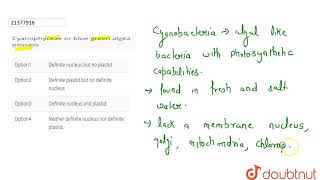 21377916
Cyanophyceae or blue green algea
possess
Option1 Definite nucleus but no plastid
Option2 Definite plastid but no definite
nucleus
Option3 Definite nucleus and plastid
Option4 Neither definite nucleus nor definite
plastid.
Cyanobacteria → algal like
bacteria with photosynthetic
capabilities.
→ found in fresh and salt
water.
→ lack a membrane nucleus,
golgi, mitochondria, chlorop
doubtnut